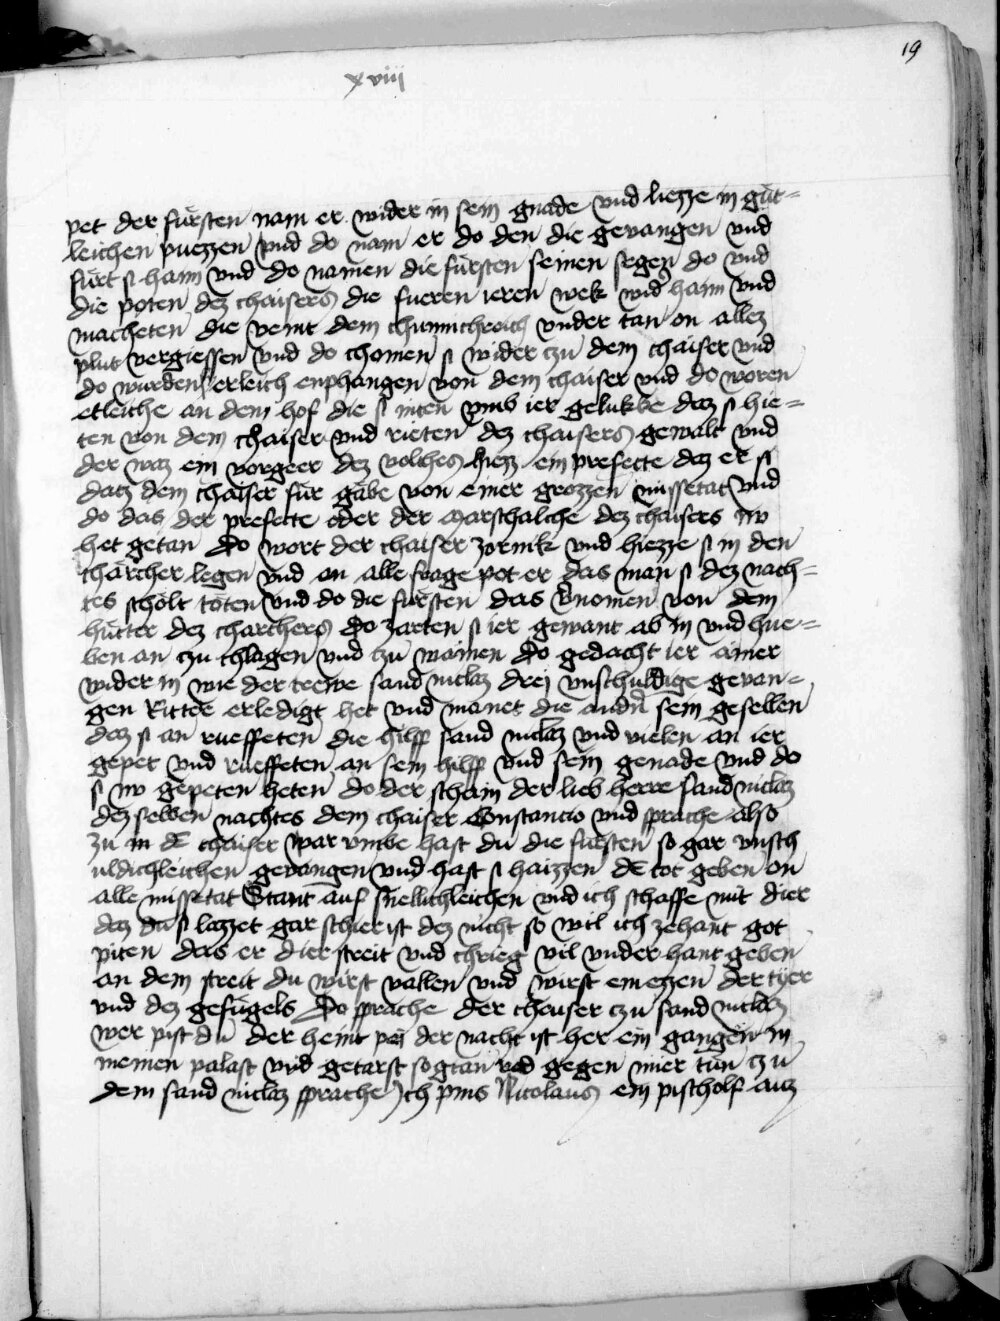 19
xviii
pet der fürsten nam er wider in sein gnade vnd liezze in güt=
leichen puezzen vnd do nam er do den die gevangen vnd
fürt si haim vnd do namen die fürsten seinen segen do vnd
die poten dez chaisers die fueren ieren wek wider haim vnd
macheten die veint dem chunnichreich vnder tan on allez
plut vergiessen vnd do chomen si wider czu dem chaiser vnd
do wurden si erleich enphangen von dem chaiser vnd do woren
etleiche an dem hof die si niten vmb ier gelukke daz si hie=
ten von dem chaiser vnd rieten dez chaisers gewalt vnd
der waz ein vorgeer dez volches hiezz ein prefecte daz er si
datz dem chaiser für gäbe von einer grozzen missetat vnd
do das der prefecte oder der Marschalche dez chaisers nv
het getan Do wort der chaiser zornik vnd hiezze si in den
chärcher legen vnd an alle froge pot er das man si dez nach=
tes scholt töten vnd do die fürsten das vernomen von dem
hütter dez charchers do zarten si ier gewant ab in vnd hue=
ben an czu chlagen vnd czu wainen Do gedacht ier ainer
wider in wie der teewe sand niclaz drei vnschuldige gevan=
gen Ritter erledigt het vnd manet die andern sein gesellen
daz si an rueffeten die hilff sand niclaz vnd vielen an ier
gepet vnd rueffeten an sein hilff vnd sein genade vnd do
si nv gepeten heten do der schain der lieb herre sand niclaz
dez selben nachtes dem chaiser Constancio vnd sprache also
zu im de chaiser war vmbe hast du die fursten so gar vnsch
uldichleichen gevangen vnd hast si haizzen de tot geben on
alle missetat Stant auf snellichleichen vnd ich schaffe mit dier
daz du si lazzet gar schier ist dez nicht so wil ich zehant got
piten das er dier streit vnd chrieg vil vnder hant geben
an dem streit du wirst vallen vnd wirst ein ezzen der tyer
vnd dez gefügels Do sprache der chaiser czu sand niclaz
wer pist du der heint pei der nacht ist her ein gangen in
meinen palast vnd getarst sogtan red gegen mier tün czu
dem sand niclaz sprache Ich pins Nicolaus ein pischolf auz